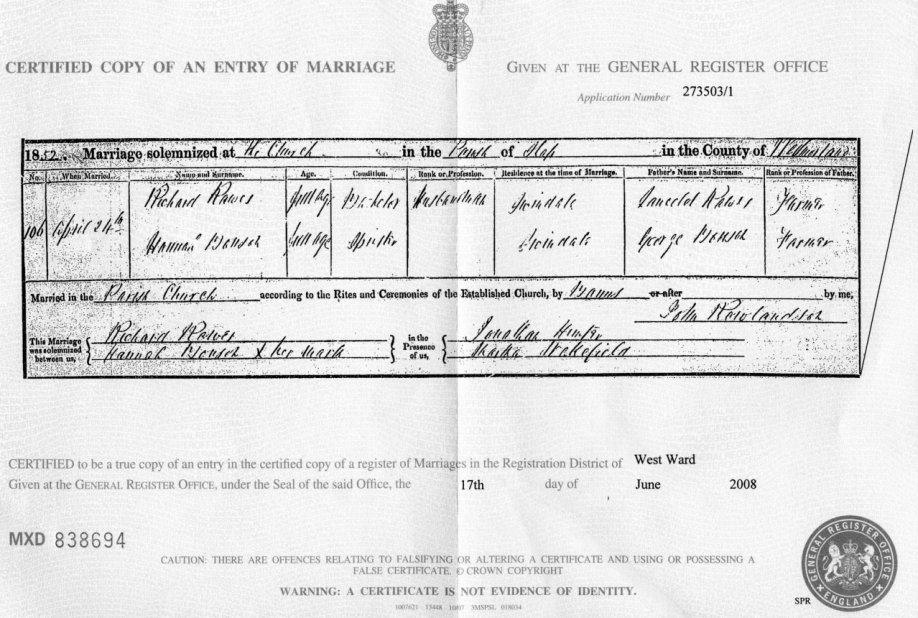 CERTIFIED COPY OF AN ENTRY OF MARRIAGE
GIVEN AT THE GENERAL REGISTER OFFICE
Application Number 273503/1
1852. Marriage solemnized at the Church in the Parish of Shap in the County of Westmorland
No. When Married. Name and Surname. Age. Condition. Rank or Profession. Residence at the time of Marriage. Father's Name and Surname. Rank or Profession of Father.
106 April 24th Richard Rawes full age Bachelor Husbandman Swindale Lancelot Rawes Farmer
Hannah Benson full age Spinster Swindale George Benson Farmer
Married in the Parish Church according to the Rites and Ceremonies of the Established Church, by Banns or after by me,
John Rowlandson
This Marriage was solemnized between us, Richard Rawes
Hannah Benson X her mark
in the Presence of us, Jonathan
Wakefield
CERTIFIED to be a true copy of an entry in the certified copy of a register of Marriages in the Registration District of West Ward
Given at the GENERAL REGISTER OFFICE, under the Seal of the said Office, the 17th day of June 2008
MXD 838694
CAUTION: THERE ARE OFFENCES RELATING TO FALSIFYING OR ALTERING A CERTIFICATE AND USING OR POSSESSING A
FALSE CERTIFICATE. © CROWN COPYRIGHT
WARNING: A CERTIFICATE IS NOT EVIDENCE OF IDENTITY.
SPR
GENERAL REGISTER OFFICE
ENGLAND